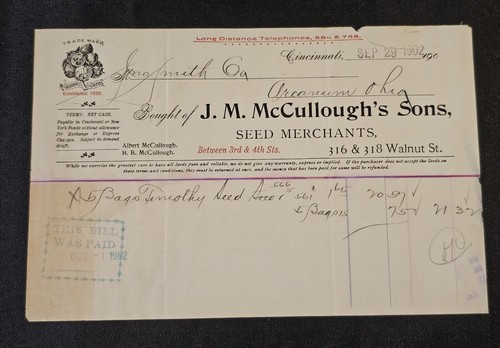 Long Distance Telephones, 564 & 748.
TRADE MARK
ESTABLISHED 1838.
Cincinnati, SEP 29 1902 190
Smith Co
Arcanum Ohio
Bought of J. M. McCullough's Sons,
SEED MERCHANTS,
Between 3rd & 4th Sts. 316 & 318 Walnut St.
TERMS: NET CASH.
Payable in Cincinnati or New
York Funds without allowance
for Exchange or Express
Charges. Subject to demand
draft.
Albert McCullough.
H. B. McCullough.
While we exercise the greatest care to have all Seeds pure and reliable, we do not give any warranty, express or implied. If the purchaser does not accept the Seeds on
these terms and conditions, they must be returned at once, and the money that has been paid for same will be refunded.
5 Bags Timothy Seed 566 561 1 65 20 57
5 Bags 15 75 21 32
THIS BILL
WAS PAID
OCT -1 1902